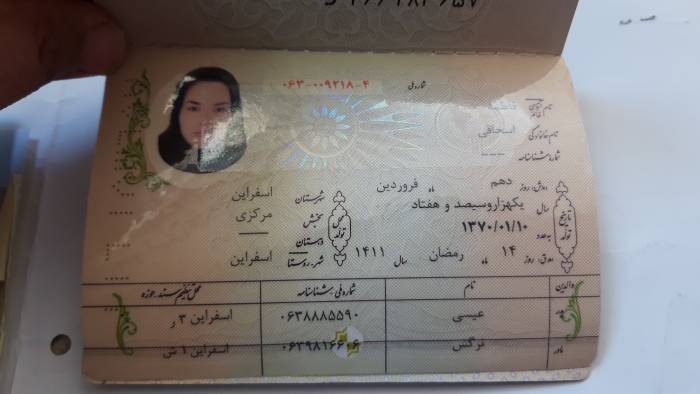 شماره ملی ۰۶۳-۰۰۹۲۱۸-۴
نام
نام خانوادگی اسحاقی
شماره شناسنامه ---
تاریخ تولد
روز دهم ماه فروردین
سال یکهزاروسیصد و هفتاد
به عدد ۱۳۷۰/۰۱/۱۰
روز ۱۴ ماه رمضان سال ۱۴۱۱
محل تولد
شهرستان اسفراین
بخش مرکزی
دهستان —
شهر-روستا اسفراین
والدین نام شماره ملی شناسنامه محل تنظیم سند حوزه
پدر عیسی ۰۶۳۸۸۸۵۵۹۰ اسفراین ۳ ر
مادر نرگس ۰۶۳۹۸۱۶۶۰۶ اسفراین ۱ ش